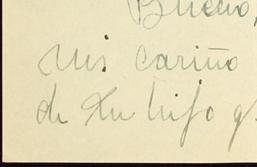 Bueno,
mis cariño
de tu hijo q